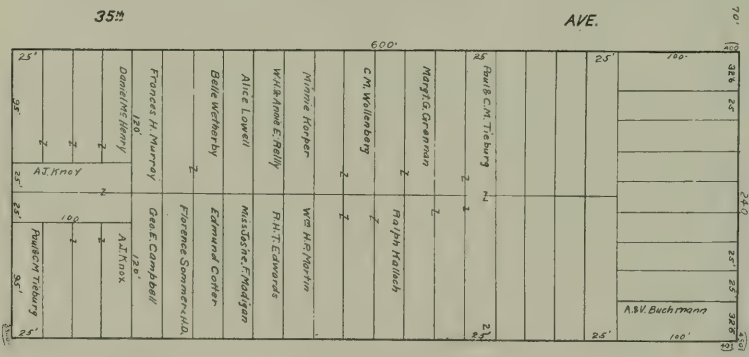 35th AVE. 70.
600.
25' 25 25' 100.
32 6
25
240
25'
25
32 6
95'
25'
25'
95'
Daniel McHenry
120'
Frances H. Murray
Belle Wetherby
Alice Lowell
W.H. & Annie E. Reilly
Minnie Korper
C.M. Wollenberg
Margt. G. Grennan
Paul & C.M. Tieburg
A.J. Knox
100
Paul & C.M. Tieburg
A.J. Knox
120'
Geo. E. Campbell
Florence Sommer
Edmund Cotter
Miss Jos'ne. F. Madigan
R.H.T. Edwards
Wm H.P. Martin
Ralph Hallock
A. & V. Buchmann
25' 25' 25' 100'